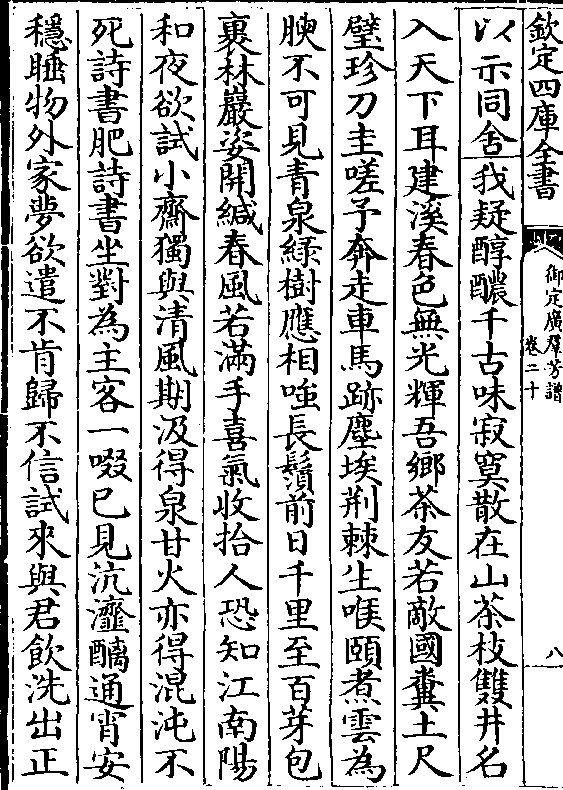 欽定四庫全書
御定廣群芳譜
卷二十
八
以示同舍我疑醇醲千古味寂寞散在山茶枝雙井名
入天下耳建溪春色無光輝吾鄉茶友若敵國糞土尺
璧珍刀圭嗟予奔走車馬跡塵埃荆棘生喉頤煮雲為
腴不可見青泉綠樹應相嗤長鬚前日千里至百芽包
裹林巖姿開緘春風若滿手喜氣收拾人恐知江南陽
和夜欲試小齋獨與清風期汲得泉甘火亦得混沌不
死詩書肥詩書坐對為主客一啜已見沆瀣醨通宵安
穩睡物外家夢欲遣不肯歸不信試來與君飲洗出正